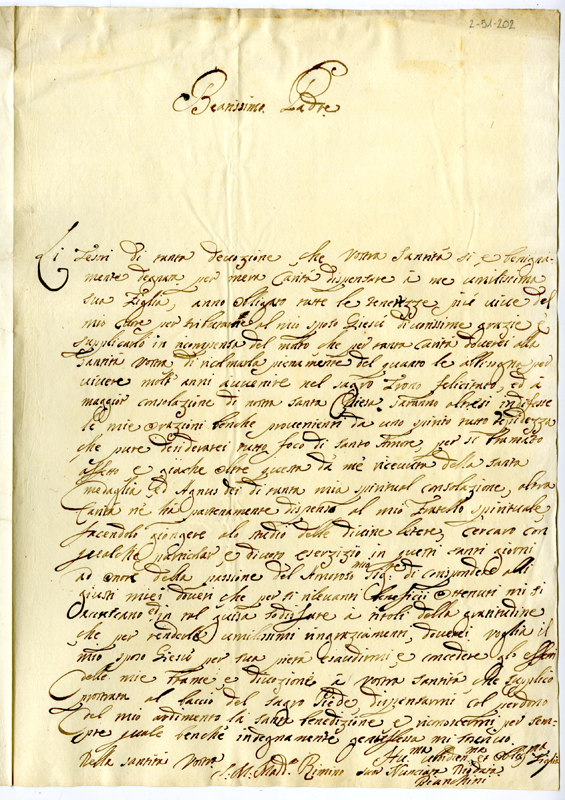 2-51-202
Beatissimo Padre
Li Tesori di tanta devozione che Vostra Santità si è benigna-
mente degnata per mera Carità dispensare à me umilissima
sua Figlia, anno obligato tutte le tenerezze più vive del
mio Cuore per tributarne al mio sposo Giesù divotissime grazie e
supplicarlo in ricompensa del molto che per tanta Carità doverei alla
Santità Vostra di ricolmarla pienamente del
vivere molti anni avvenire nel sagro Trono felicitato, ed à
maggior consolazione di nostra santa Chiesa. saranno altresì
le mie orazioni benche provenienti da uno spirito tutto tepidezza
che pure desidererei tutto foco di santo Amore, per si bramato
e giache oltre questa da mè ricevuta della santa
medaglia, ed Agnus dei di tanta mia spiritual consolazione, altra
tanta nè hà paternamente dispenso al mio Fratello spirituale,
facendolo giongere allo medio delle divine lettere, cercarò con
qualche particolar, e divoto eserzizio in questi santi giorni
ad onore della passione del Amoroso mio Sig.re di corispondere alli
giusti miei doveri che per si rilevanti Benefici ottenuti mi si
in tal guisa sodisfare à titoli della gratitudine
che per renderle umilissimi ringraziamenti, doverei, voglia il
mio sposo Giesù per sua pietà esaudirmi, e concedere gli effetti
delle mie brame, e divozione à Vostra Santità, che supplico
prostrata al baccio del sagro Piede, dispensarmi col perdono
del mio ardimento la santa benedizione e riconoscermi per sem-
pre quale benche indegnamente genuflessa mi
Della Santità Vostra
Rimino Suor Nunziata
Um.ma Obbedien.ma et Oblig.ma Figlia
Bianchini